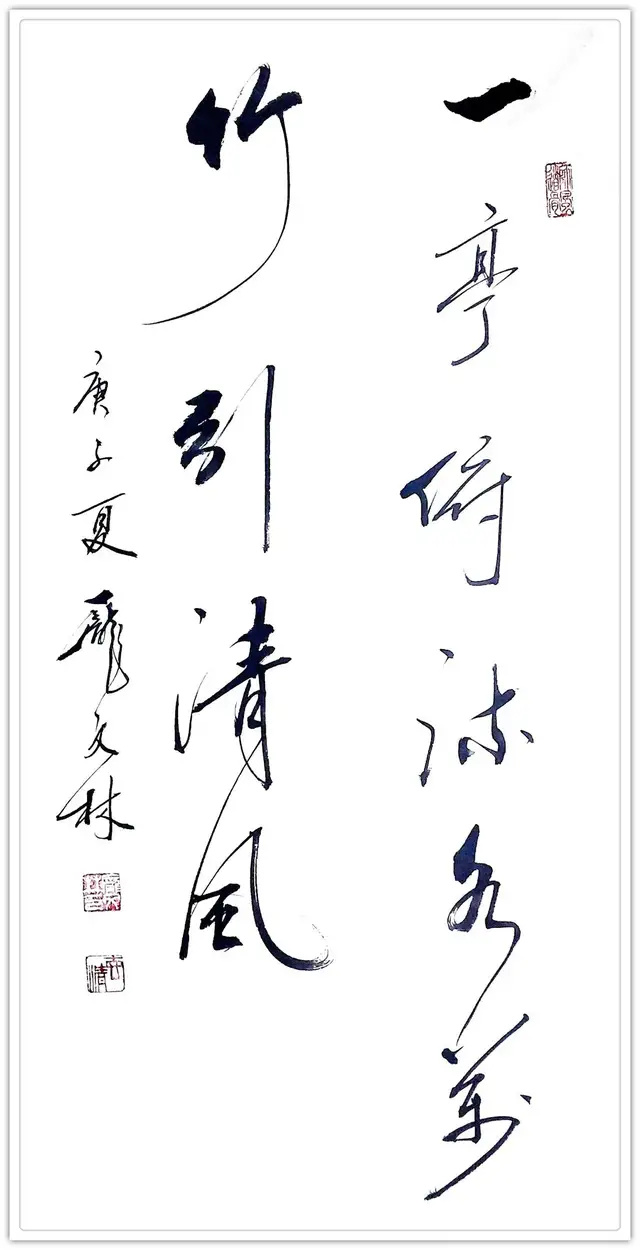 一亭俯流水萬
竹引清風
庚子夏龐文林